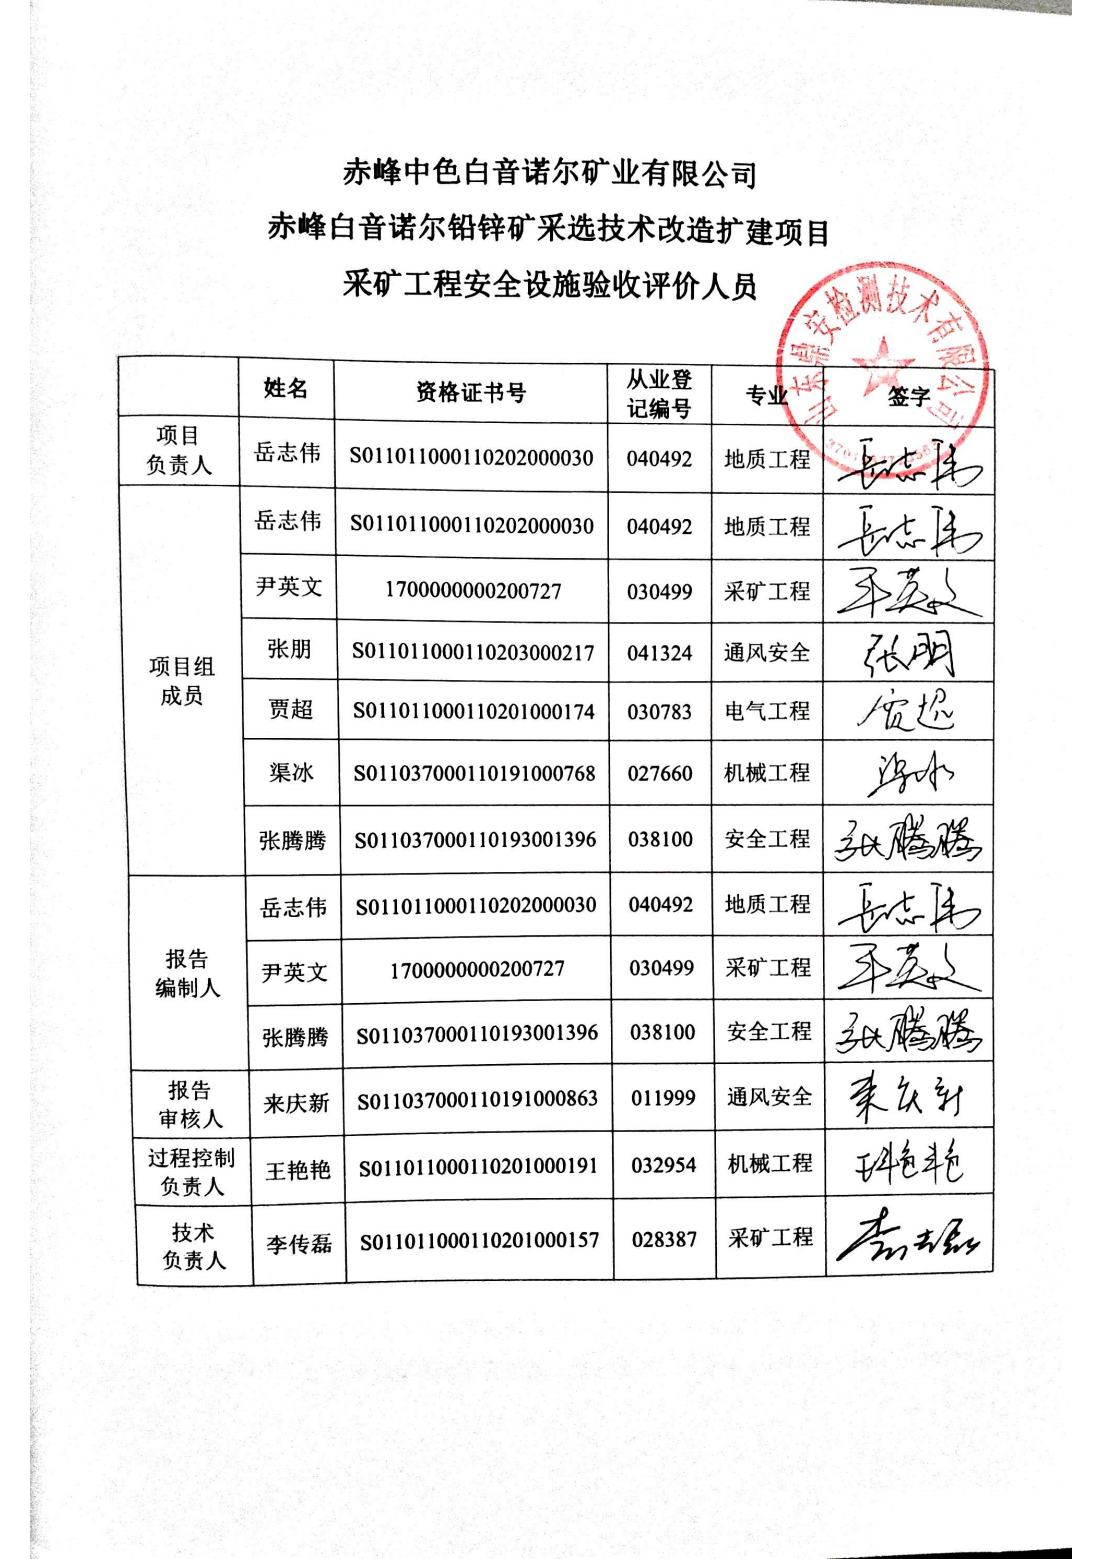 赤峰中色白音诺尔矿业有限公司
赤峰白音诺尔铅锌矿采选技术改造扩建项目
采矿工程安全设施验收评价人员
山东鼎安检测技术有限公司
姓名 资格证书号 从业登记编号 专业 签字
项目负责人 岳志伟 S011011000110202000030 040492 地质工程 岳志伟
项目组成员 岳志伟 S011011000110202000030 040492 地质工程 岳志伟
尹英文 1700000000200727 030499 采矿工程 尹英文
张朋 S011011000110203000217 041324 通风安全 张朋
贾超 S011011000110201000174 030783 电气工程 贾超
渠冰 S011037000110191000768 027660 机械工程 渠冰
张腾腾 S011037000110193001396 038100 安全工程 张腾腾
报告编制人 岳志伟 S011011000110202000030 040492 地质工程 岳志伟
尹英文 1700000000200727 030499 采矿工程 尹英文
张腾腾 S011037000110193001396 038100 安全工程 张腾腾
报告审核人 来庆新 S011037000110191000863 011999 通风安全 来庆新
过程控制负责人 王艳艳 S011011000110201000191 032954 机械工程 王艳艳
技术负责人 李传磊 S011011000110201000157 028387 采矿工程 李传磊